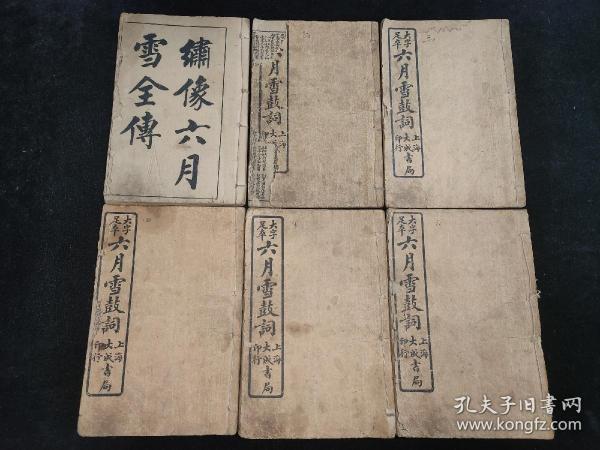 繡像六月
雪全傳
六月雪鼓詞
上海
大成書局
印行
大字
足本
六月雪鼓詞
上海
大成書局
印行
大字
足本
六月雪鼓詞
上海
大成書局
印行
大字
足本
六月雪鼓詞
上海
大成書局
印行
大字
足本
六月雪鼓詞
上海
大成書局
印行
孔夫子旧书网
www.kongfz.com